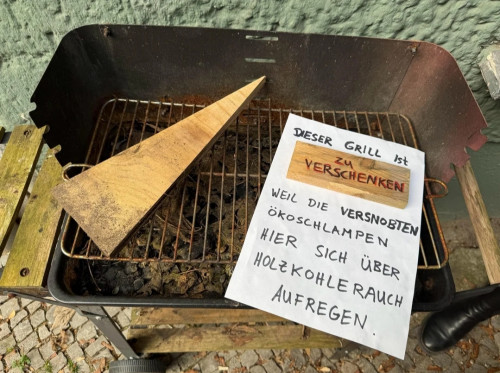 DIESER GRILL ist
ZU
VERSCHENKEN
WEIL DIE VERSNOBTEN
ÖKOSCHLAMPEN
HIER SICH ÜBER
HOLZKOHLERAUCH
AUFREGEN.